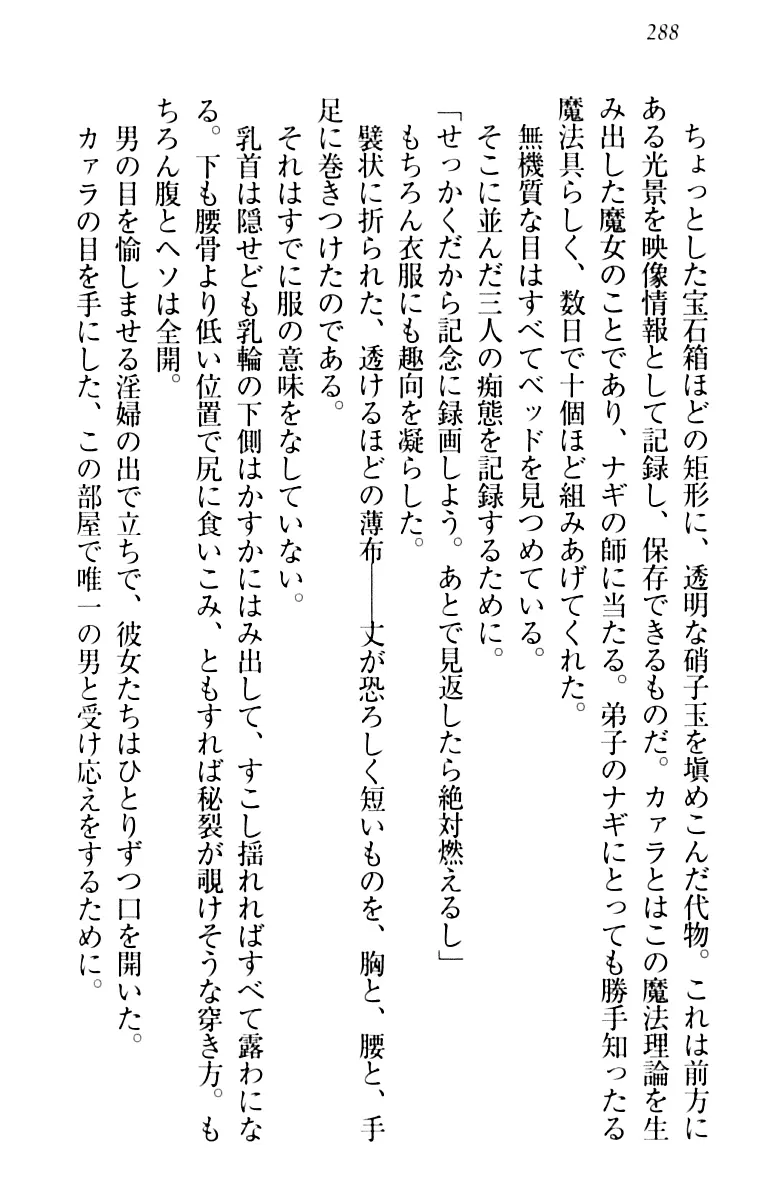 288
ちょっとした宝石箱ほどの矩形に、透明な硝子玉を塡めこんだ代物。これは前方に
ある光景を映像情報として記録し、保存できるものだ。カァラとはこの魔法理論を生
み出した魔女のことであり、ナギの師に当たる。弟子のナギにとっても勝手知ったる
魔法具らしく、数日で十個ほど組みあげてくれた。
無機質な目はすべてベッドを見つめている。
そこに並んだ三人の痴態を記録するために。
「せっかくだから記念に録画しよう。あとで見返したら絶対燃えるし」
もちろん衣服にも趣向を凝らした。
襞状に折られた、透けるほどの薄布――丈が恐ろしく短いものを、胸と、腰と、手
足に巻きつけたのである。
それはすでに服の意味をなしていない。
乳首は隠せども乳輪の下側はかすかにはみ出して、すこし揺れればすべて露わにな
る。下も腰骨より低い位置で尻に食いこみ、ともすれば秘裂が覗けそうな穿き方。も
ちろん腹とヘソは全開。
男の目を愉しませる淫婦の出で立ちで、彼女たちはひとりずつ口を開いた。
カァラの目を手にした、この部屋で唯一の男と受け応えをするために。